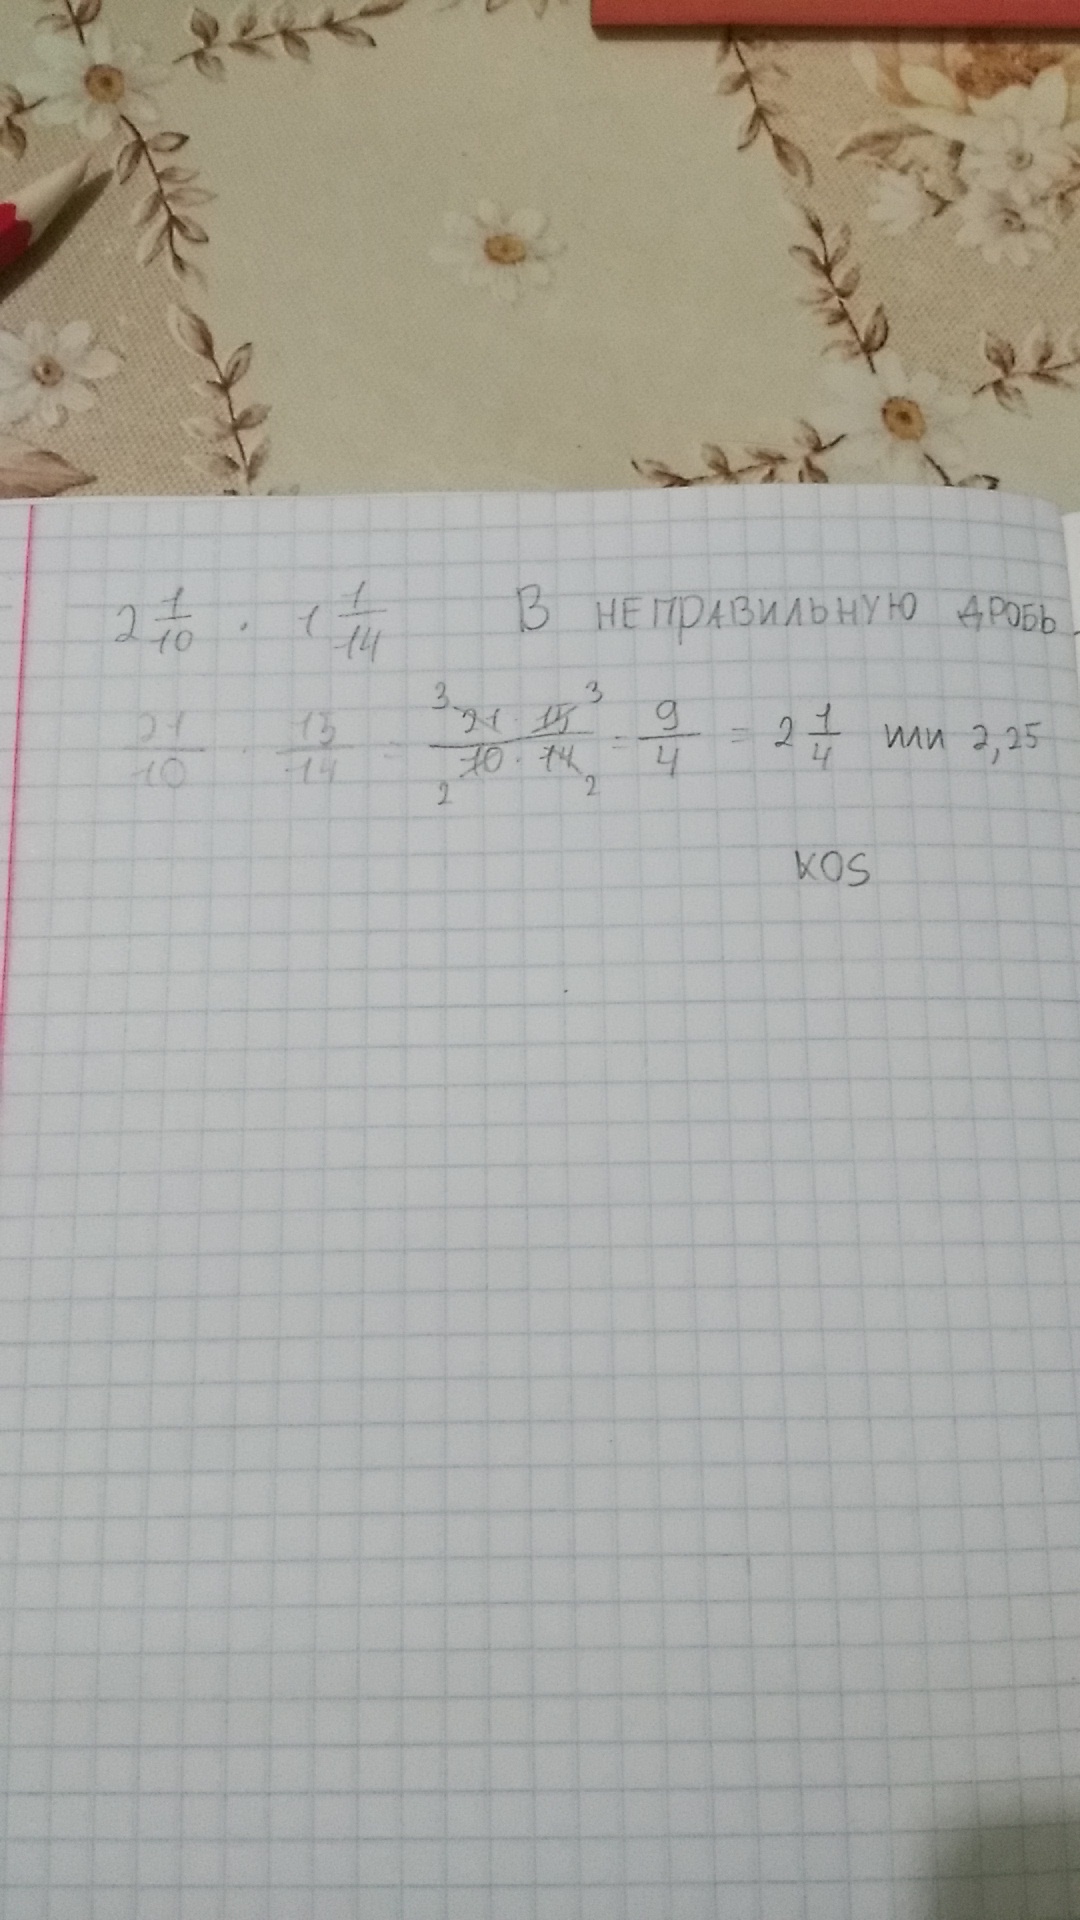 2 1/10 · 1 1/14 В НЕПРАВИЛЬНУЮ ДРОБЬ.
21/10 · 15/14 = 3 21 · 15 3 / 2 10 · 14 2 = 9/4 = 2 1/4 или 2,25
KOS